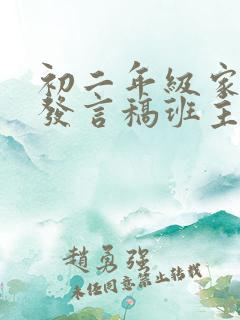 初二年級家
發言稿班主
趙勇強
未经同意禁止转载